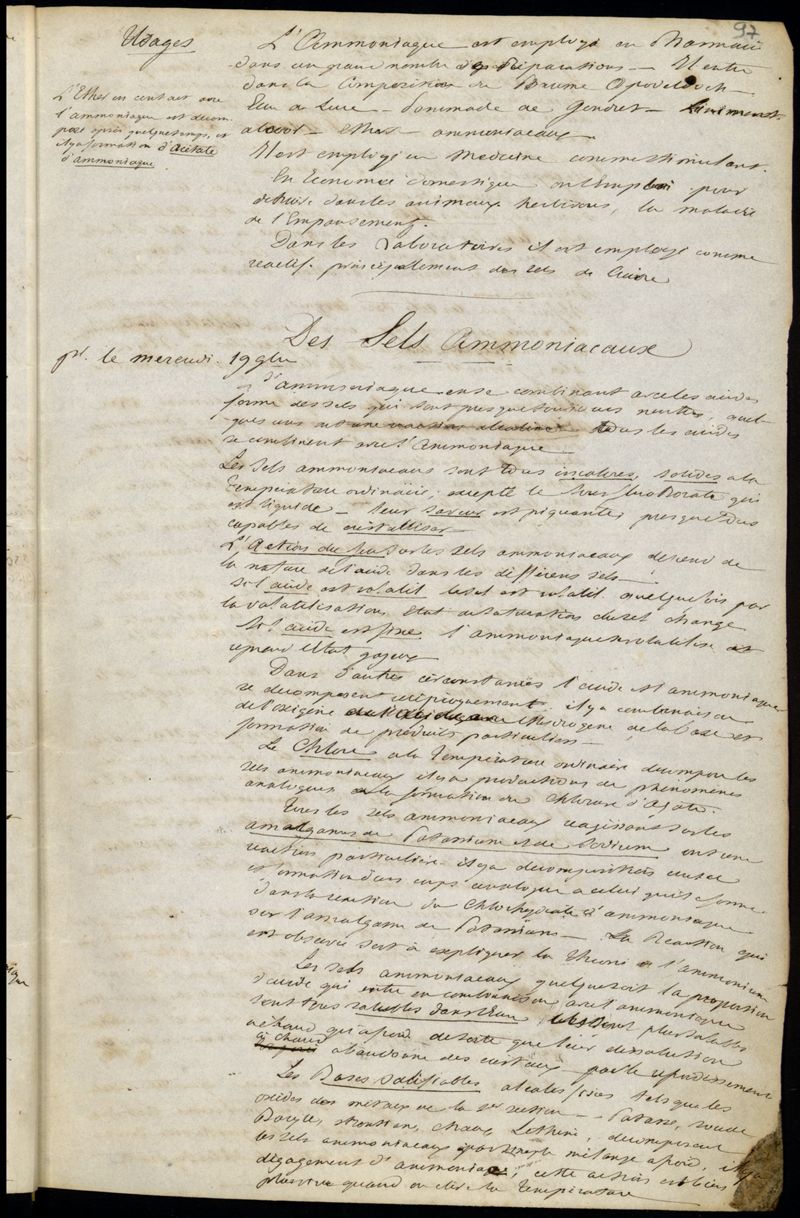 97
Usages
L'Ammoniaque est employé en Pharmacie
dans un grand nombre de Préparations — Il entre
dans la Composition du Baume Opodeldoch —
Eau de Luce — Pommade de Gondret — Liniment
alcool — Ether — ammoniacaux
Il est employé en Medecine comme stimulant.
En Economie domestique on l'emploi pour
detruire dans les animaux herbivores, la maladie
de l'Empansement.
Dans les Laboratoires il est employé comme
reactif. principallement des sels de Cuivre
L'Ether en contact avec
l'ammoniaque est decom
posé après quelque temps, et
il y a formation d'Acétate
d'ammoniaque
Des Sels Ammoniacaux
le mercredi 19 9bre
L'ammoniaque en se combinant avec les acides
forme des sels qui sont presque tous neutres, quel
ques uns ont une reaction alcaline — Tous les acides
se combinent avec l'Ammoniaque
Les Sels ammoniacaux sont tous incolores, solides a la
Température ordinaire, excepté le qui
est liquide — leur saveur est piquante, presque tous
capables de cristalliser
L'Action du feu sur les sels ammoniacaux depend de
la nature de l'acide dans les differens sels —
Si l'acide est volatil le sel est volatil quelquefois par
la volatilisation, l'Etat de saturation du sel change
Si l'acide est fixe l'ammoniaque se volatilise et
reprend l'Etat gazeux
Dans d'autres circonstances l'acide et l'ammoniaque
se decomposent reciproquement il y a combinaison
de l'oxigène de l'Hidrogène de la Base et
formation de produits particuliers —
Le Chlore a la Température ordinaire decompose les
sels ammoniacaux il y a production de phénomènes
analogues a la formation du Chlorure d'Azote.
Tous les sels ammoniacaux reagissant sur les
amalgames de Potassium et de Sodium ont une
reaction particulière il y a decomposition
et formation d'un corps analogue a celui qui se forme
dans la reaction du Chlorhydrate d'ammoniaque
sur l'amalgame de Potassium — La Reaction qui
est observée sert à expliquer la Theorie de l'ammonium
Les sels ammoniacaux quelque soit la proportion
d'acide qui entre en combinaison avec l'ammoniaque
sont tres solubles dans l'Eau, ils sont plus solubles
a chaud qu'a froid de sorte que leur dissolution
a chaud abandonne des cristaux par le refroidissement
Les Bases salifiables alcales tels que les
oxides des métaux de la 2e section — Potasse, soude
Baryte, strontiane, chaux Lithine, decomposent
les sels ammoniacaux par simple mélange a froid, il y a
dégagement d'ammoniaque, cette action est bien
plus vive quand on eleve la Température